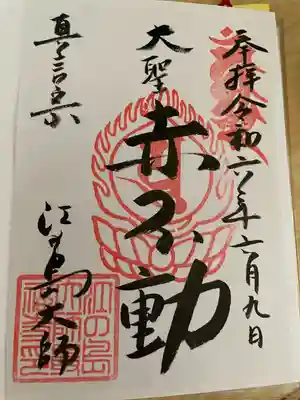 奉拝 令和六年六月九日
大聖
赤不動
真言宗
江の島大師